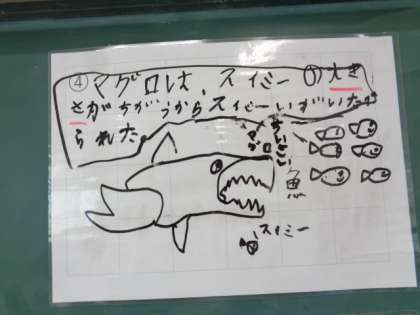 ④マグロは、スイミー①大き
さがちがうからスイミーいがいたべ
られた。
マグロ
ちいさい
魚
スイミー